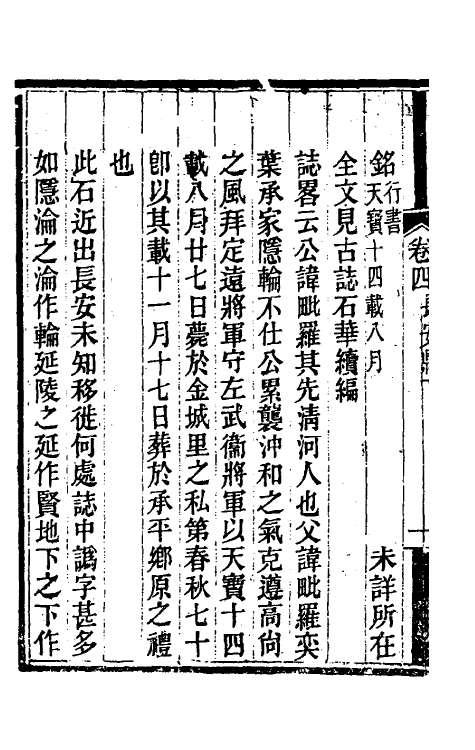 卷四長安縣 十
銘 行書 天寳十四載八月 未詳所在
全文見古誌石華續編
誌畧云公諱毗羅其先清河人也父諱毗羅奕
葉承家隱輪不仕公累襲沖和之氣克遵高尙
之風拜定遠將軍守左武衞將軍以天寳十四
載八月廿七日薨於金城里之私第春秋七十
卽以其載十一月十七日葬於承平鄉原之禮
也
此石近出長安未知移徙何處誌中譌字甚多
如隱淪之淪作輪延陵之延作賢地下之下作